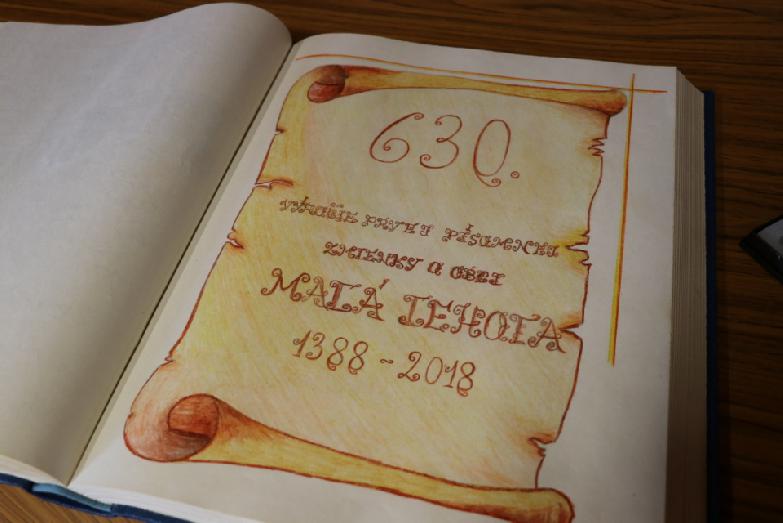 630.
VÝROČIE PRVEJ PÍSOMNEJ
ZMIENKY O OBCI
MALÁ LEHOTA
1388 - 2018